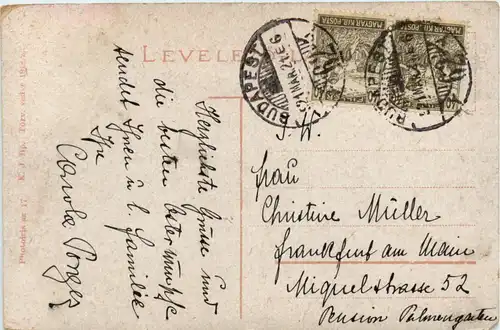 LEVELE
MAGYAR KIR. POSTA
MAGYAR KIR. POSTA
BUDAPEST
921 MAR 21 E 6
BUDAPEST
Herzlichste Grüsse und
die besten Osterwünsche
sendet Ihnen u. l. Familie
Ihre
Carola Porges
I. H.
Frau
Christine Müller
Frankfurt am Main
Miquelstrasse 52
Pension Palmengarten